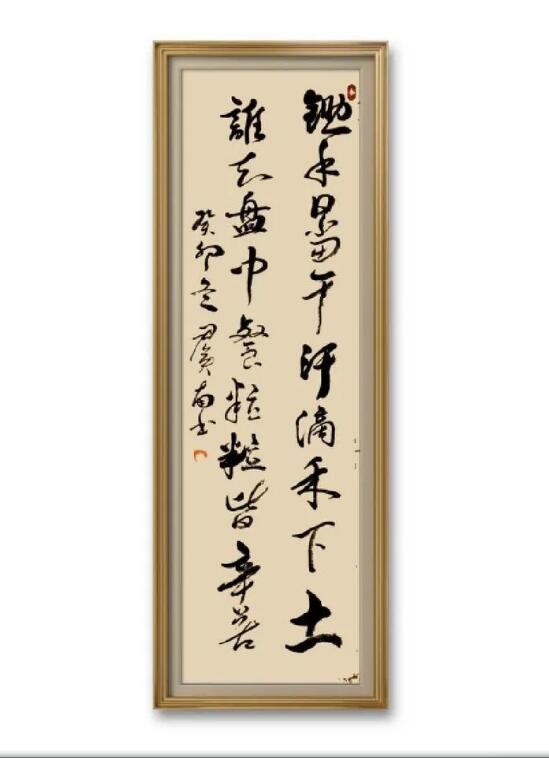 鋤禾日當午汗滴禾下土
誰知盤中餐粒粒皆辛苦
癸卯冬廣南书